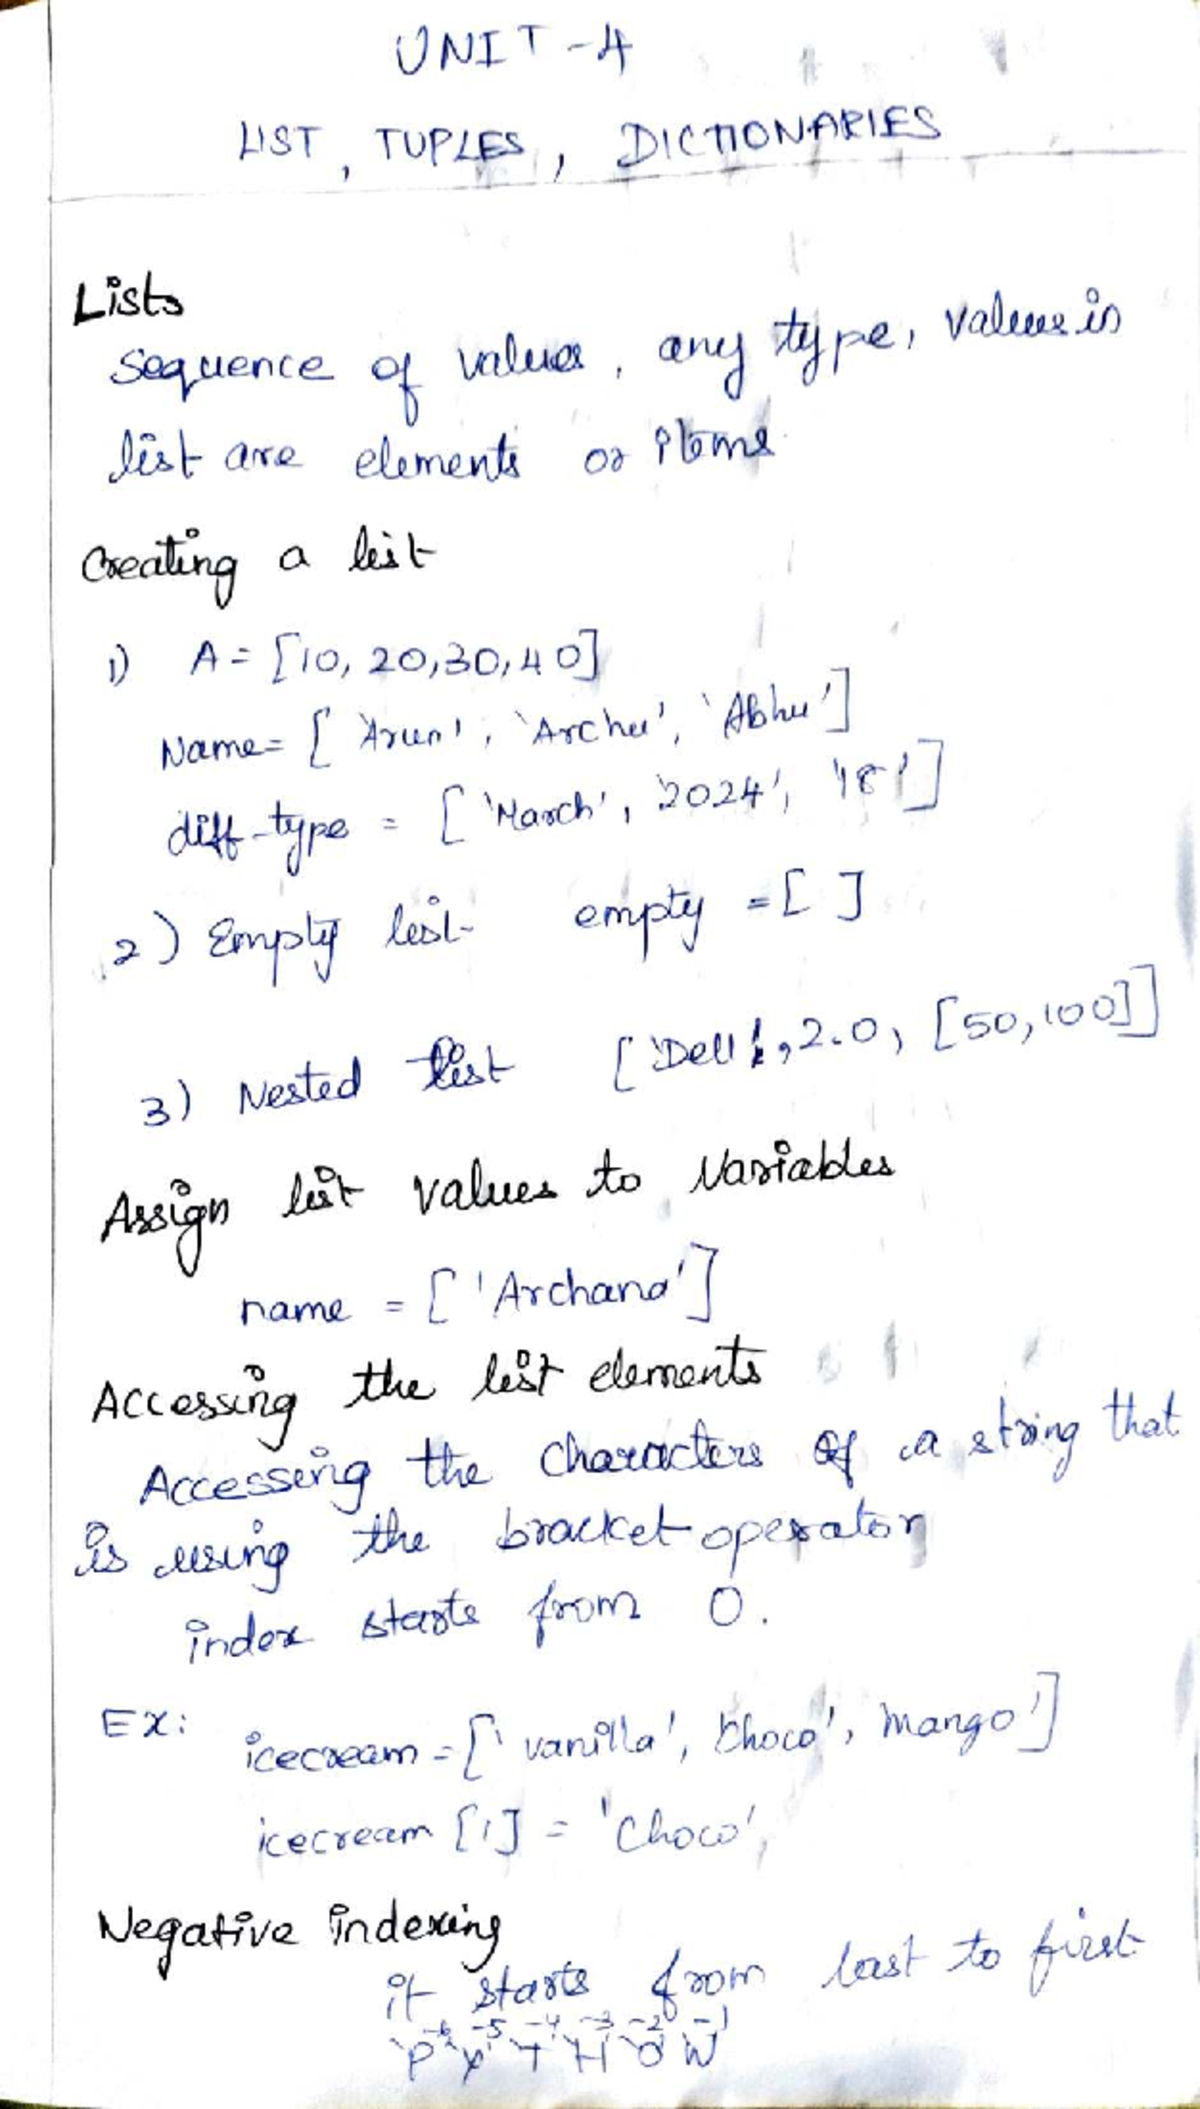 UNIT-4
LIST, TUPLES, DICTIONARIES
Lists
Sequence of values, any type, values in
list are elements or items
Creating a list
1) A = [10, 20, 30, 40]
Name = ['Arun', 'Archu', 'Abhu']
diff-type = ['March', '2024', '18']
2) Empty list empty = [ ]
3) Nested list ['Dell', 2.0, [50, 100]]
Assign list values to Variables
name = ['Archana']
Accessing the list elements
Accessing the characters of a string that
is using the bracket operator
index starts from 0.
EX: icecream = ['vanilla', 'choco', 'mango']
icecream [1] = 'Choco',
Negative indexing
it starts from last to first
-6 -5 -4 -3 -2 -1
'P' 'Y' 'T' 'H' 'O' 'N'